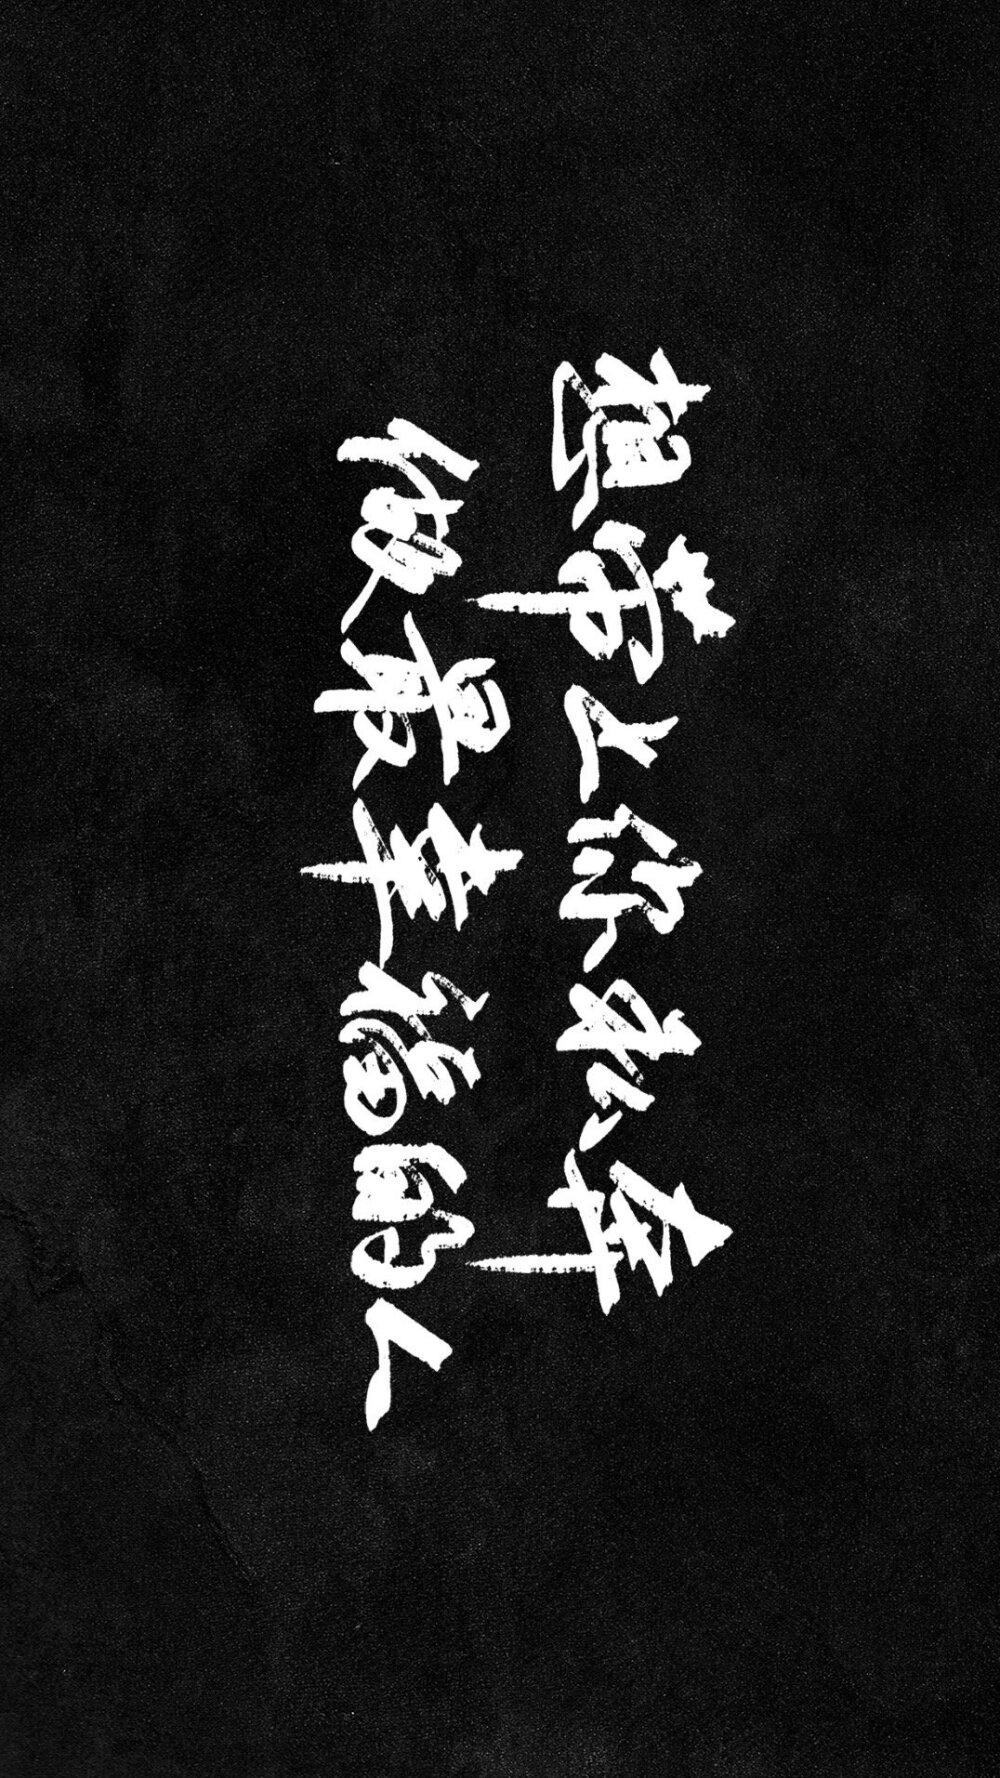 想带上你私奔
做最幸福的人